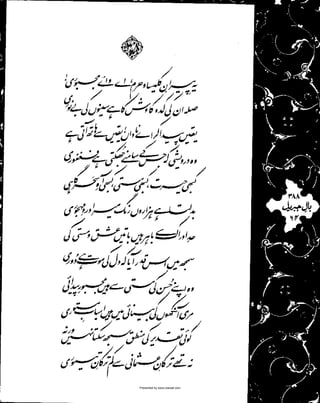 یہ پیرانِ کلیسا و حرم، اے وائے مجبوری
صلہ ان کی کدوکاوش کا ہے سینوں کی بے نوری
یقیں پیدا کر اے ناداں! یقیں سے ہاتھ آتی ہے
وہ درویشی، کہ جس کے سامنے جھکتی ہے فغفوری
کبھی حیرت، کبھی مستی، کبھی آہِ سحرگاہی
بدلتا ہے ہزاروں رنگ میرا دردِ مہجوری
حدِ ادراک سے باہر ہیں باتیں عشق و مستی کی
سمجھ میں اس قدر آیا کہ دل کی موت ہے، دوری
وہ اپنے حسن کی مستی سے ہیں مجبورِ پیدائی
مری آنکھوں کی بینائی میں ہیں اسبابِ مستوری
کوئی تقدیر کی منطق سمجھ سکتا نہیں ورنہ
نہ تھے ترکانِ عثمانی سے کم ترکانِ تیموری
۳۸۸
بالِ جبریل
Presented by www.iqbalist.com